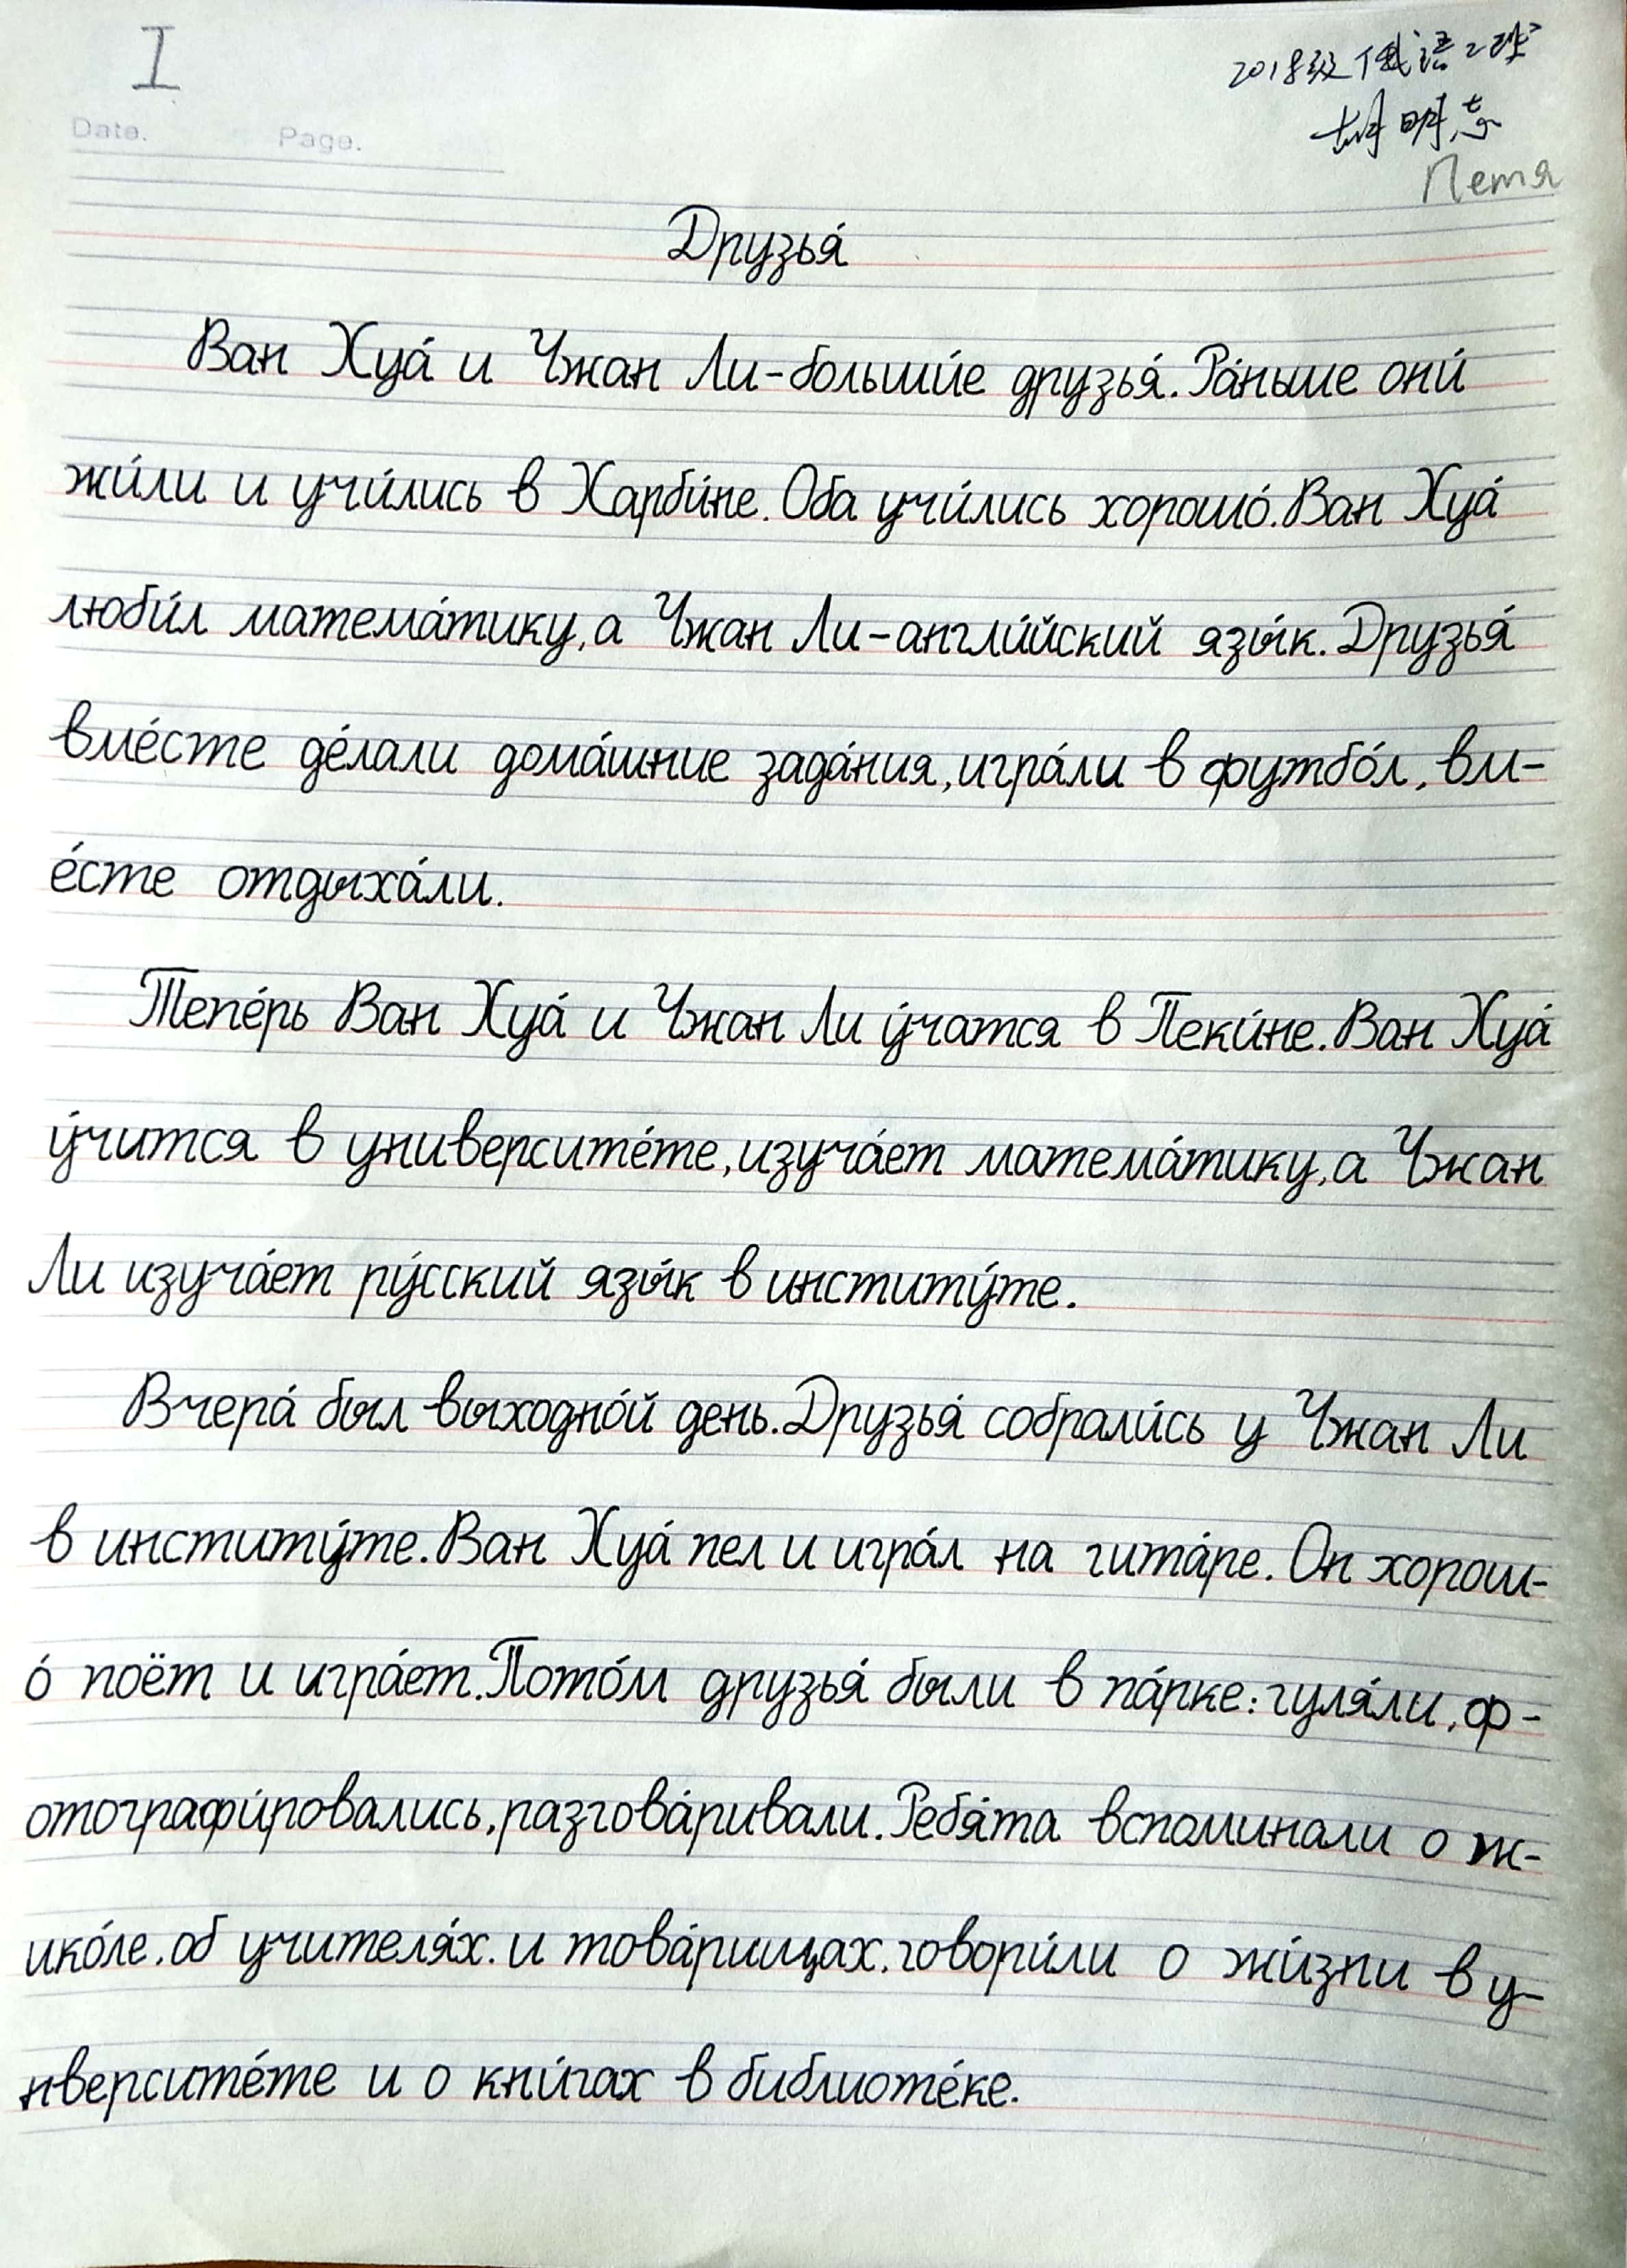 I
2018级俄语2班
胡明
Петя
Date. Page.
Друзья́
Ван Хуа́ и Чжан Ли-больши́е друзья́. Ра́ньше они́
жи́ли и учи́лись в Харби́не. Оба учи́лись хорошо́. Ван Хуа́
люби́л матема́тику, а Чжан Ли-англи́йский язы́к. Друзья́
вме́сте де́лали дома́шние зада́ния, игра́ли в футбо́л, вм-
е́сте отдыха́ли.
Тепе́рь Ван Хуа́ и Чжан Ли у́чатся в Пеки́не. Ван Хуа́
у́чится в университе́те, изуча́ет матема́тику, а Чжан
Ли изуча́ет ру́сский язы́к в институ́те.
Вчера́ был выходно́й день. Друзья́ собрали́сь у Чжан Ли
в институ́те. Ван Хуа́ пел и игра́л на гита́ре. Он хорош-
о́ поёт и игра́ет. Пото́м друзья́ были в па́рке: гуля́ли, ф-
отографи́ровались, разгова́ривали. Ребя́та вспоминали о ж-
ико́ле. об учителя́х. и това́рищах. говори́ли о жи́зни в у-
нверсите́те и о кни́гах в библиоте́ке.